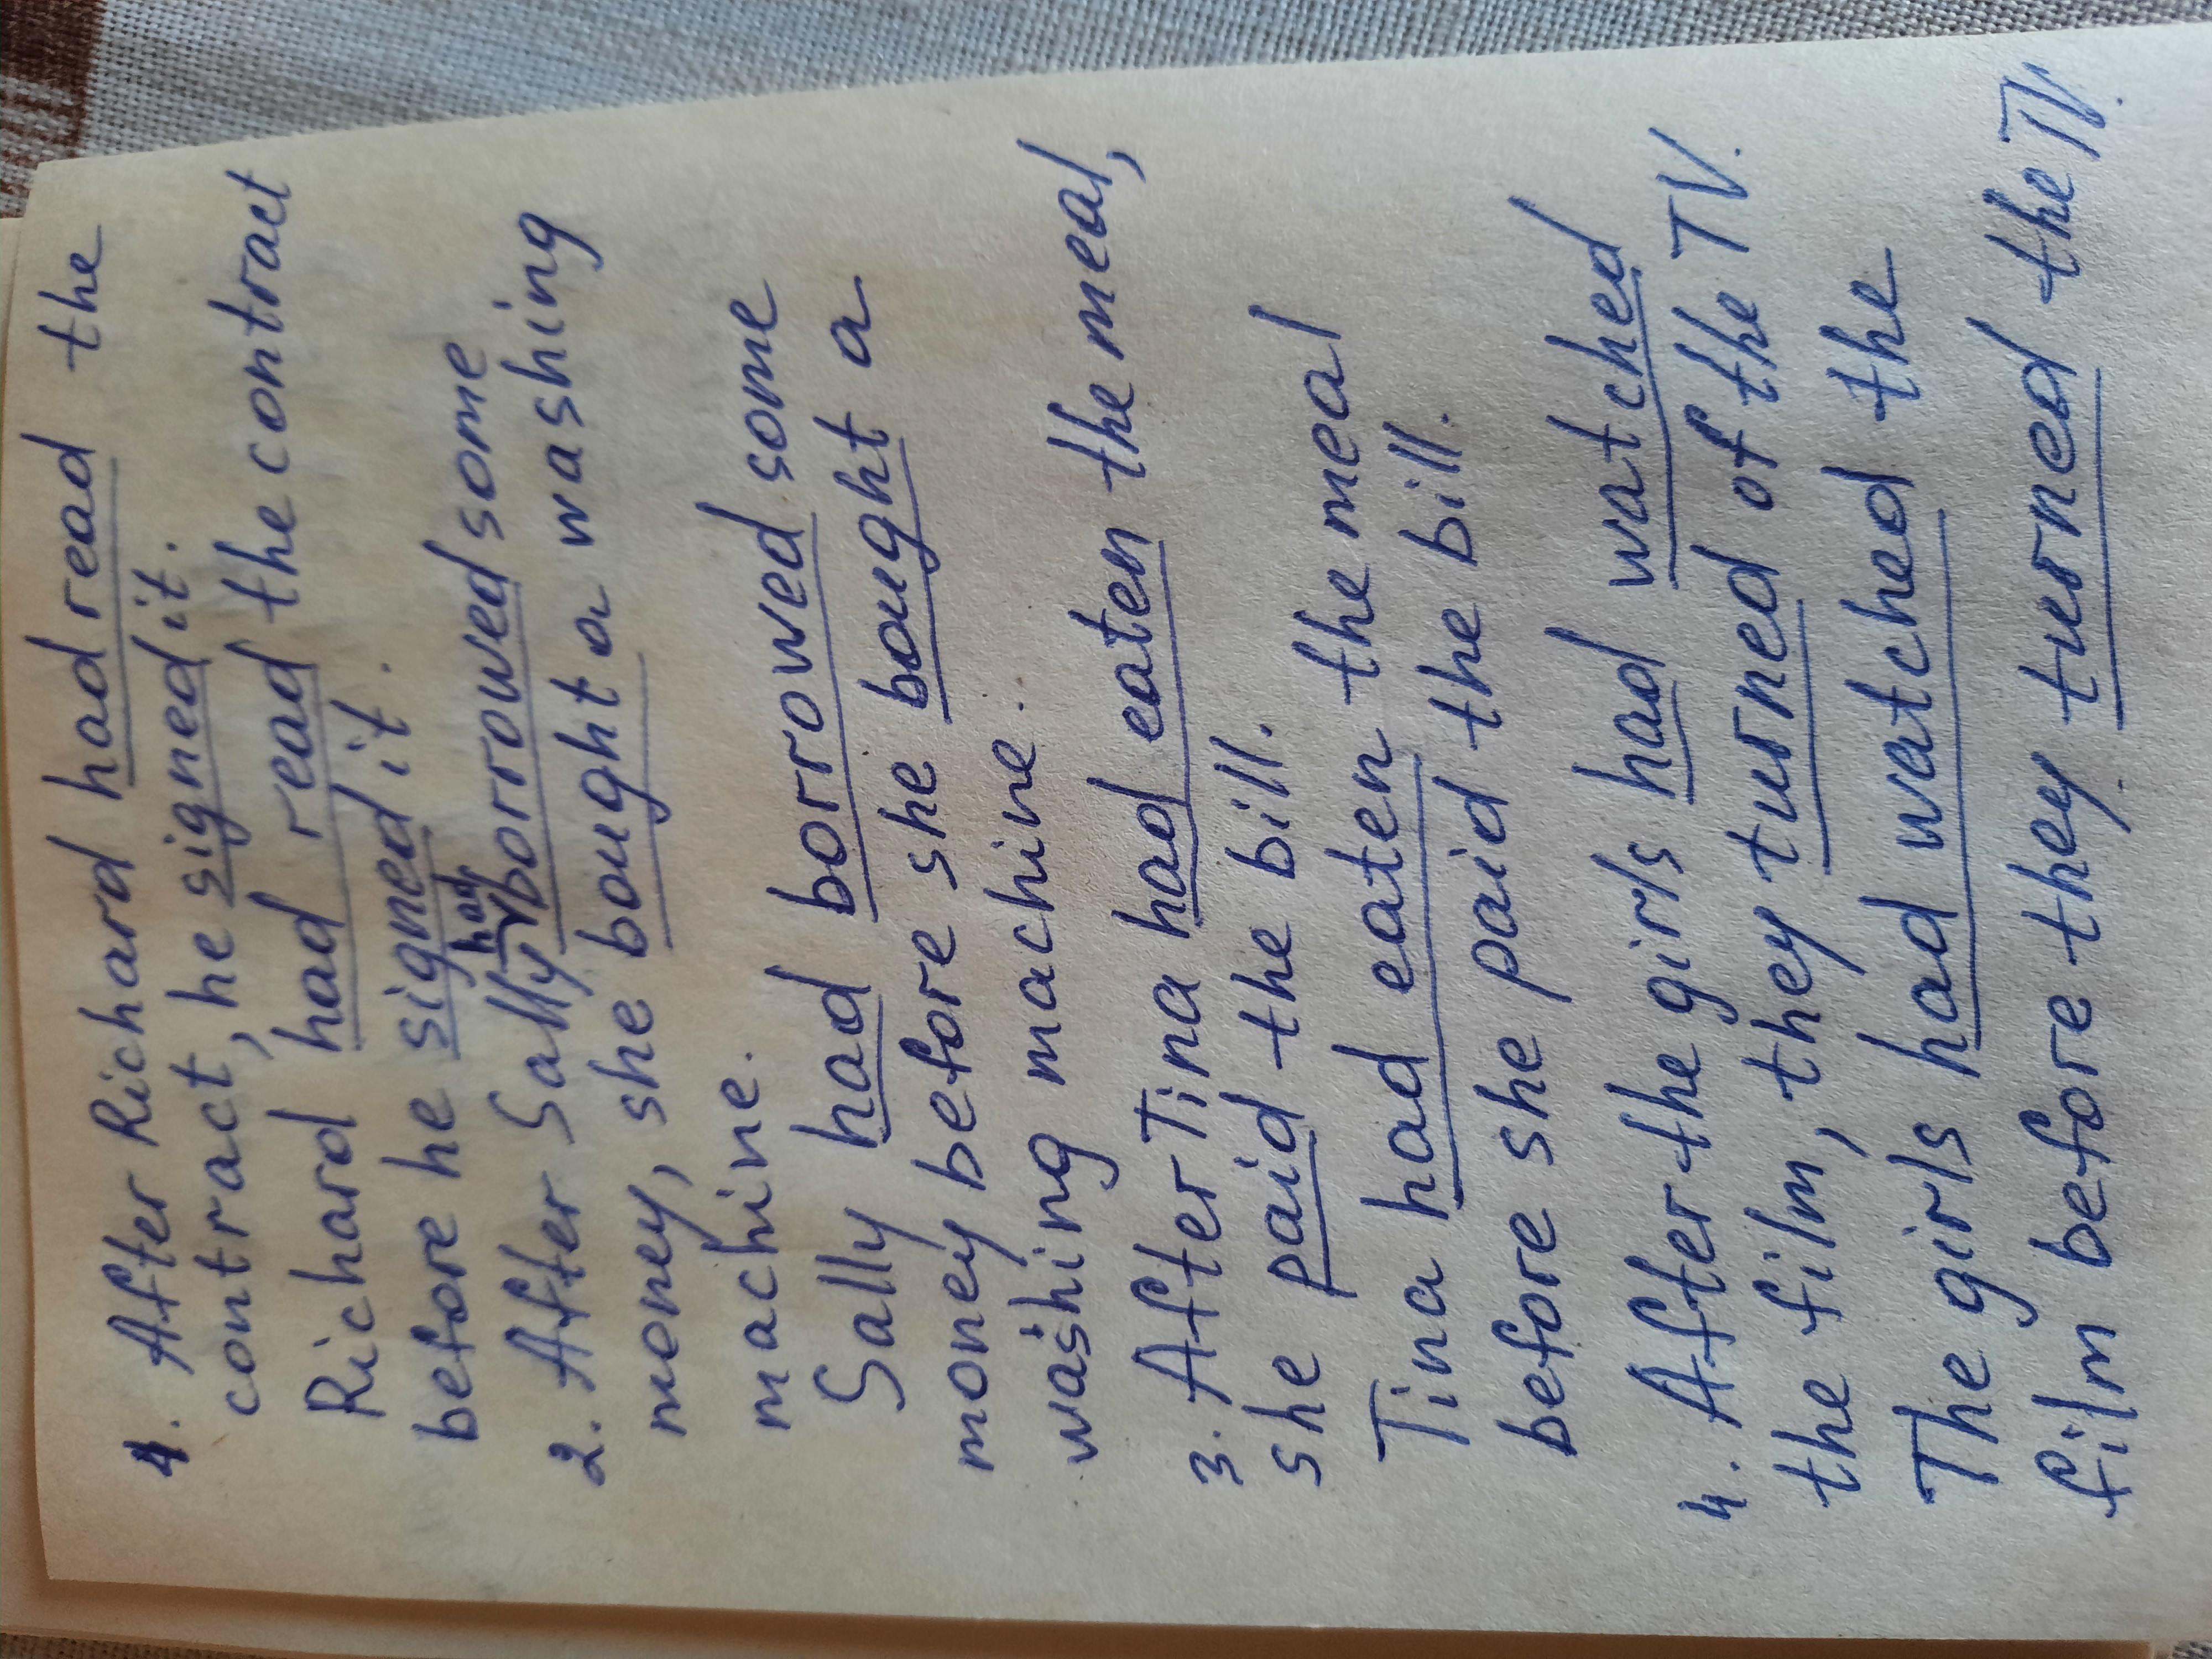 1. After Richard had read the
contract, he signed it.
Richard had read the contract
before he signed it.
2. After Sally had borrowed some
money, she bought a washing
machine.
Sally had borrowed some
money before she bought a
washing machine.
3. After Tina had eaten the meal,
she paid the bill.
Tina had eaten the meal
before she paid the bill.
4. After the girls had watched
the film, they turned of the TV.
The girls had watched the
film before they turned the TV.